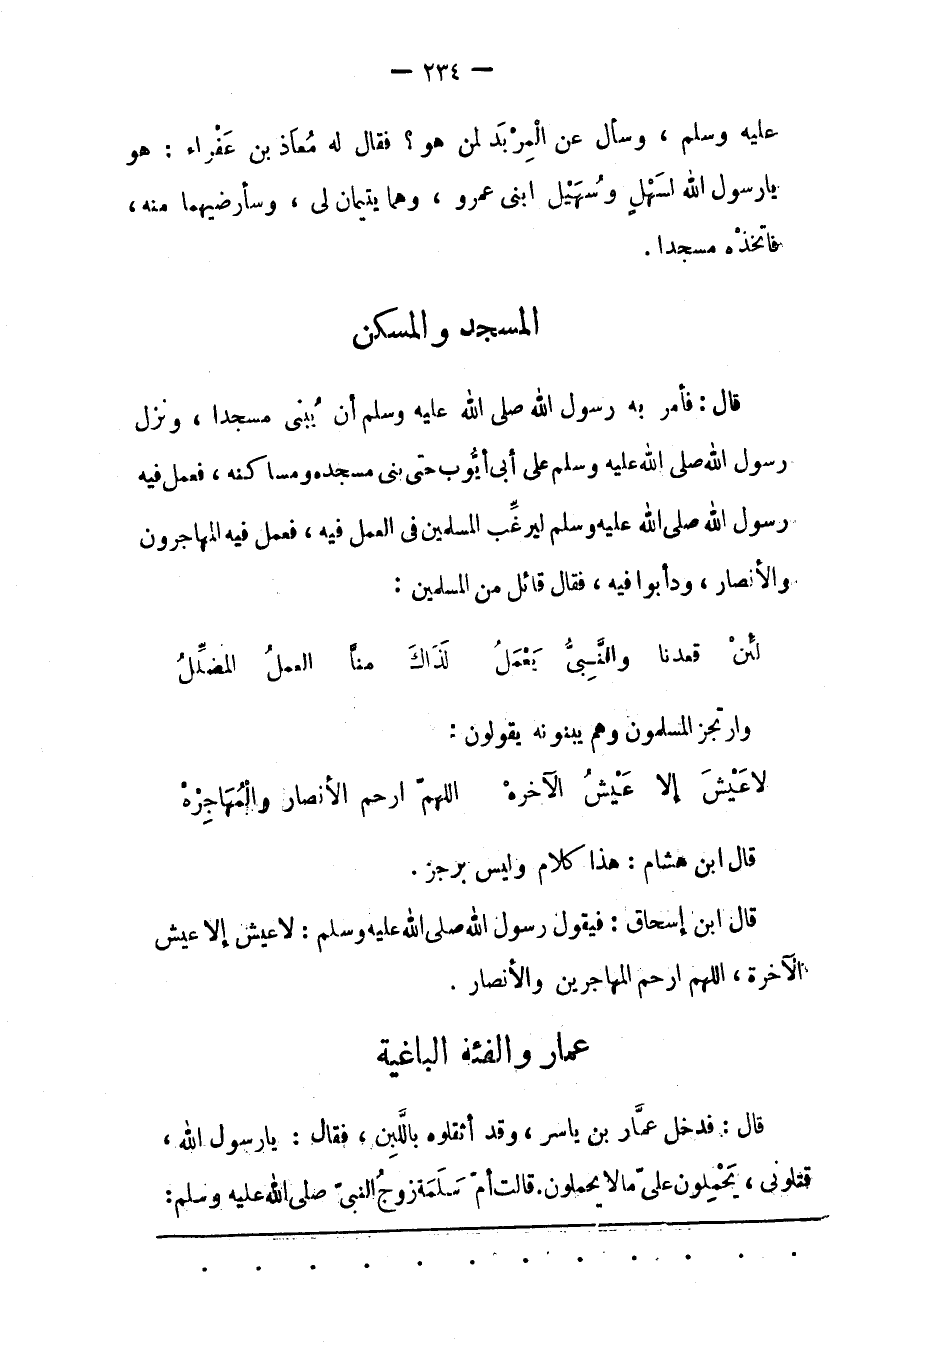 — ٢٣٤ —
عليه وسلم ، وسأل عن الْمِرْبَد لمن هو ؟ فقال له مُعَاذ بن عَفْراء : هو
يارسول الله لسَهْلٍ وسُهَيْل ابنى عمرو ، وهما يتيمان لى ، وسأرضيهما منه ،
فاتخذْه مسجدا .
المسجد والمسكن
قال : فأمر به رسول الله صلى الله عليه وسلم أن يُبْنى مسجدا ، ونزل
رسول الله صلى الله عليه وسلم على أبى أيُّوب حتى بنى مسجده ومساكنه ، فعمل فيه
رسول الله صلى الله عليه وسلم ليرغِّب المسلمين فى العمل فيه ، فعمل فيه المهاجرون
والأنصار ، ودأبوا فيه ، فقال قائل من المسلمين :
لَئِنْ قعدنا والنَّبِىُّ يَعْمَلُ لَذَاكَ منَّا العملُ المضلِّلُ
وارتجز المسلمون وهم يبنونه يقولون :
لاعَيْشَ إلا عَيْشُ الآخرهْ اللهمّ ارحم الأنصار والْمُهَاجِرْهْ
قال ابن هشام : هذا كلام وليس برجز .
قال ابن إسحاق : فيقول رسول الله صلى الله عليه وسلم : لاعيش إلا عيش
الآخرة ، اللهم ارحم المهاجرين والأنصار .
عمار والفئة الباغية
قال : فدخل عمَّار بن ياسر ، وقد أثقلوه باللَّبِن ، فقال : يارسول الله ،
قتلونى ، يَحْمِلون علىّ مالا يحملون. قالت أمّ سَلَمَة زوجُ النبىّ صلى الله عليه وسلم :
. . . . . . . . . . . .